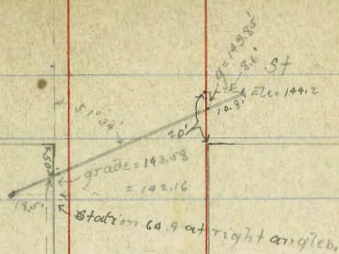 g = 149.85'
8.6'
St
Ele = 144.2
10.8'
51°34'
20'
50'
grade = 143.58
" = 142.16
18.5'
Station 64.9 at right angles,